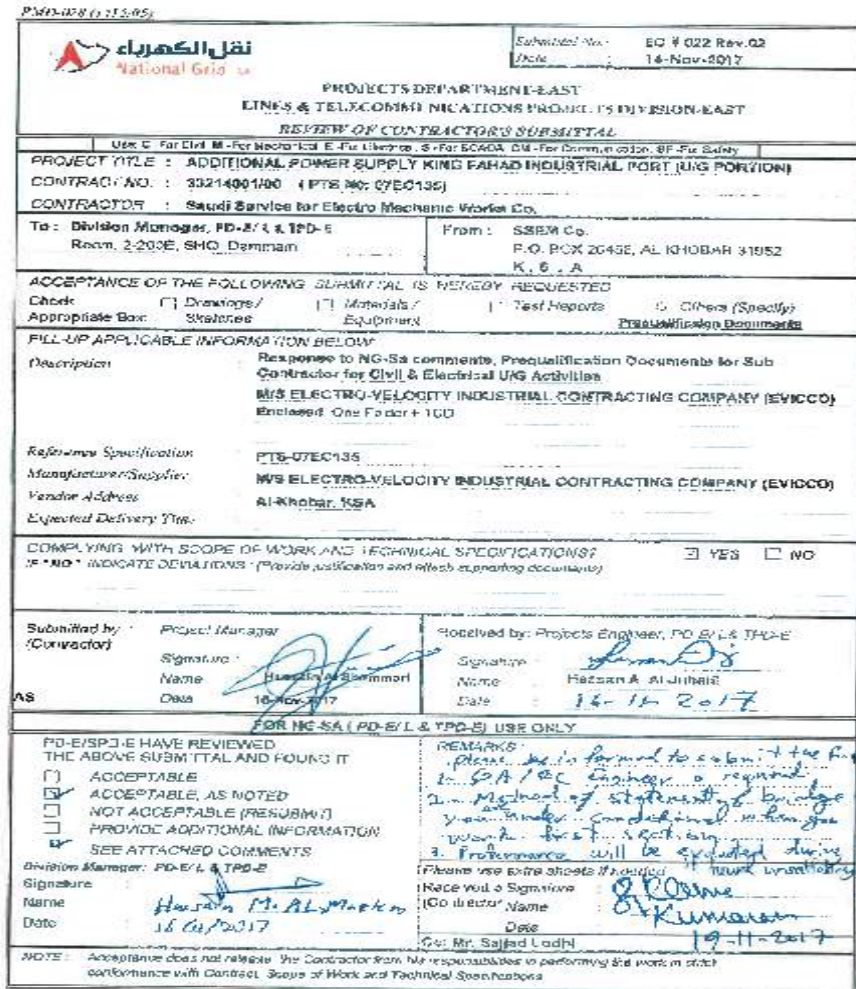 PMD-028 (
نقل الكهرباء
National Grid SA
Submittal No. : EC # 022 Rev.02
Date : 14-Nov-2017
PROJECTS DEPARTMENT-EAST
LINES & TELECOMMUNICATIONS PROJECTS DIVISION-EAST
REVIEW OF CONTRACTOR'S SUBMITTAL
Use: C -For Civil M -For Mechanical E -For Electrical S -For SCADA CM -For Communication SF -For Safety
PROJECT TITLE : ADDITIONAL POWER SUPPLY KING FAHAD INDUSTRIAL PORT (U/G PORTION)
CONTRACT NO. : 33214001/00 (PTS NO: 07EC135)
CONTRACTOR : Saudi Service for Electro Mechanic Works Co.
To : Division Manager, PD-E/L & TPD-E
Room, 2-203E, SHO, Dammam
From : SSEM Co.
P.O. BOX 20452, AL KHOBAR 31952
K . S . A
ACCEPTANCE OF THE FOLLOWING SUBMITTAL IS HEREBY REQUESTED
Check Drawings / Materials / Test Reports Others (Specify)
Appropriate Box: Sketches Equipment Prequalification Documents
FILL-UP APPLICABLE INFORMATION BELOW
Description : Response to NG-Sa comments, Prequalification Documents for Sub
Contractor for Civil & Electrical U/G Activities
M/S ELECTRO-VELOCITY INDUSTRIAL CONTRACTING COMPANY (EVICCO)
Enclosed: One Folder + 1CD
Reference Specification PTS-07EC135
Manufacturer/Supplier M/S ELECTRO-VELOCITY INDUSTRIAL CONTRACTING COMPANY (EVICCO)
Vendor Address Al-Khobar, KSA
Expected Delivery Time:
COMPLYING WITH SCOPE OF WORK AND TECHNICAL SPECIFICATIONS? YES NO
IF "NO" INDICATE DEVIATIONS : (Provide justification and attach supporting documents)
Submitted by : Project Manager
(Contractor)
Signature :
Name Hussain Al Shammari
AS Date 16-Nov-2017
Received by: Projects Engineer, PD-E/L & TPD-E
Signature
Name Hassan A. Al Jubail
Date 16-11-2017
FOR NG-SA ( PD-E/L & TPD-E) USE ONLY
PD-E/SPD-E HAVE REVIEWED
THE ABOVE SUBMITTAL AND FOUND IT
ACCEPTABLE
ACCEPTABLE, AS NOTED
NOT ACCEPTABLE (RESUBMIT)
PROVIDE ADDITIONAL INFORMATION
SEE ATTACHED COMMENTS
Division Manager: PD-E/L & TPD-E
Signature
Name
Date
REMARKS :
please be informed to submit the
1. QA/QC Engineer is required
2. Method of statement
you under conditional when you
work first section
3. will be during
Please use extra sheets if needed
Received & Signature
(Contractor) Name Kumaran
Date 19-11-2017
Cc: Mr. Sajjad Lodhi
NOTE : Acceptance does not release the Contractor from his responsibilities in performing the work in strict
conformance with Contract, Scope of Work and Technical Specifications